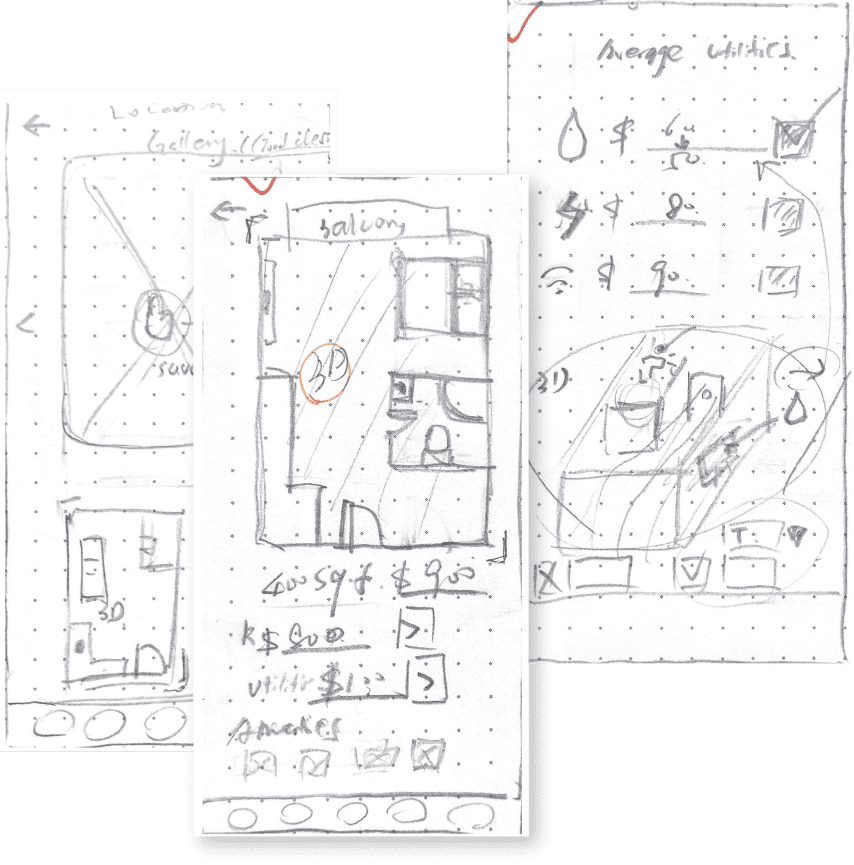 Location
Gallery
3D
Balcony
3D
400 sqf $ 900
R $ 800
utilities $100
Amenities
Average utilities.
$ 60
50
$ 80
$ 90
3D